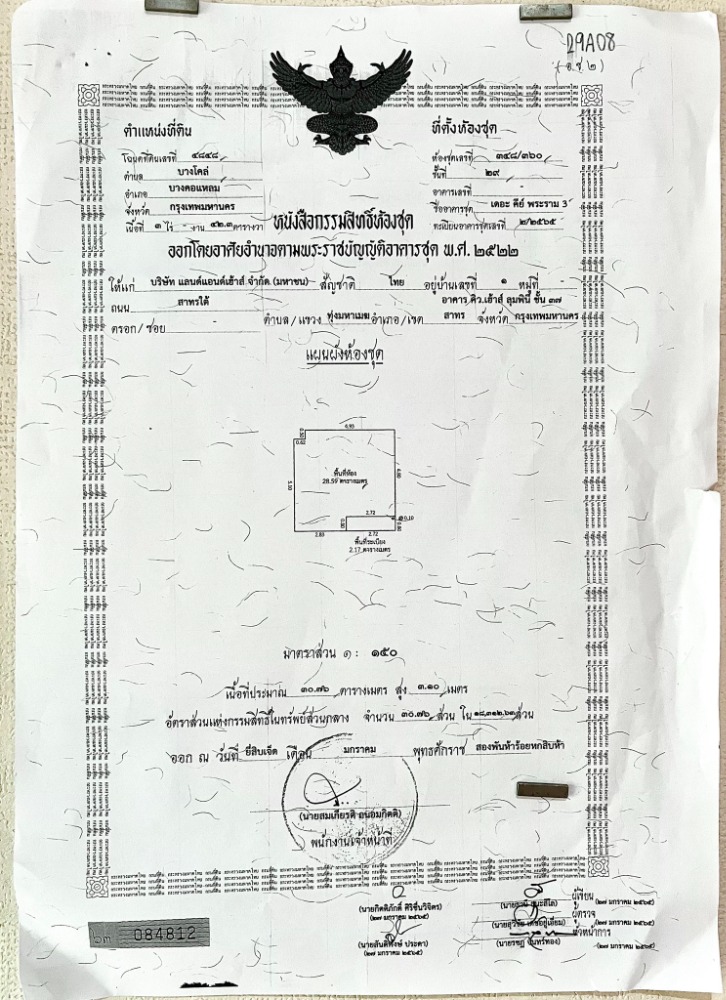 29A08
(อ.ช.๒)
ตำแหน่งที่ดิน
ที่ตั้งห้องชุด
โฉนดที่ดินเลขที่ ๔๘๔๘
ห้องชุดเลขที่ ๓๔๘/๓๖๐
ตำบล บางโคล่
ชั้นที่ ๒๙
อำเภอ บางคอแหลม
อาคารเลขที่ -
จังหวัด กรุงเทพมหานคร
ชื่ออาคารชุด เดอะ คีย์ พระราม 3
เนื้อที่ ๓ ไร่ - งาน ๔๒.๓ ตารางวา
ทะเบียนอาคารชุดเลขที่ ๒/๒๕๖๕
หนังสือกรรมสิทธิ์ห้องชุด
ออกโดยอาศัยอำนาจตามพระราชบัญญัติอาคารชุด พ.ศ. ๒๕๒๒
ให้แก่ บริษัท แลนด์แอนด์เฮ้าส์ จำกัด (มหาชน) สัญชาติ ไทย อยู่บ้านเลขที่ ๑ หมู่ที่ -
ถนน สาทรใต้ อาคาร คิว.เฮ้าส์ ลุมพินี ชั้น ๓๗
ตรอก/ซอย - ตำบล/แขวง ทุ่งมหาเมฆ อำเภอ/เขต สาทร จังหวัด กรุงเทพมหานคร
แผนผังห้องชุด
4.93
0.50
0.62
พื้นที่ห้อง
28.59 ตารางเมตร
5.50
2.72
0.10
0.80
0.80
2.83
2.72
พื้นที่ระเบียง
2.17 ตารางเมตร
มาตราส่วน ๑ : ๑๕๐
เนื้อที่ประมาณ ๓๐.๗๖ ตารางเมตร สูง ๓.๑๐ เมตร
อัตราส่วนแห่งกรรมสิทธิ์ในทรัพย์ส่วนกลาง จำนวน ๓๐.๗๖ ส่วน ใน ๑๘,๓๑๒.๖๓ ส่วน
ออก ณ วันที่ ยี่สิบเจ็ด เดือน มกราคม พุทธศักราช สองพันห้าร้อยหกสิบห้า
(นายสมเกียรติ ถนอมกิตติ)
พนักงานเจ้าหน้าที่
ผู้เขียน
(นายกิตติภักดิ์ ศิริชื่นวิจิตร)
(๒๗ มกราคม ๒๕๖๕)
(๒๗ มกราคม ๒๕๖๕)
ผู้ตรวจ
(๒๗ มกราคม ๒๕๖๕)
หัวหน้าการ
(นายสันติพงษ์ ประดา)
(๒๗ มกราคม ๒๕๖๕)
(๒๗ มกราคม ๒๕๖๕)
๖๓ 084812